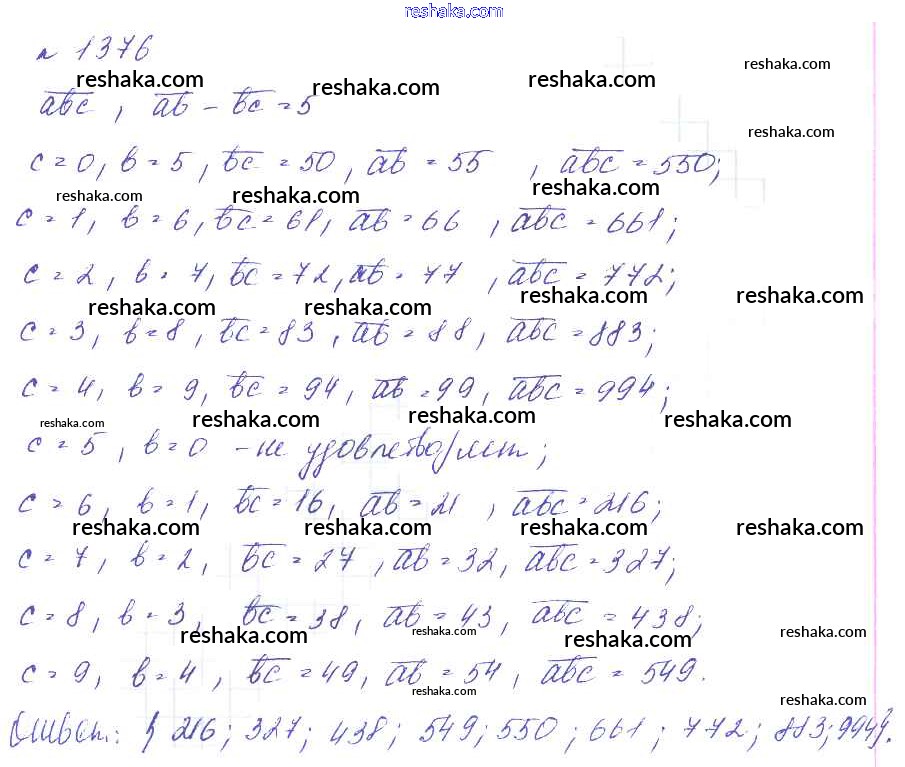 reshaka.com
№ 1376
reshaka.com reshaka.com reshaka.com reshaka.com
abc, ab - bc = 5
reshaka.com
c = 0, b = 5, bc = 50, ab = 55, abc = 550;
reshaka.com reshaka.com reshaka.com
c = 1, b = 6, bc = 61, ab = 66, abc = 661;
c = 2, b = 7, bc = 72, ab = 77, abc = 772;
reshaka.com reshaka.com reshaka.com reshaka.com
c = 3, b = 8, bc = 83, ab = 88, abc = 883;
c = 4, b = 9, bc = 94, ab = 99, abc = 994;
reshaka.com reshaka.com reshaka.com reshaka.com
c = 5, b = 0 - не удовлетворяет;
c = 6, b = 1, bc = 16, ab = 21, abc = 216;
reshaka.com reshaka.com reshaka.com reshaka.com
c = 7, b = 2, bc = 27, ab = 32, abc = 327;
c = 8, b = 3, bc = 38, ab = 43, abc = 438;
reshaka.com reshaka.com reshaka.com reshaka.com
c = 9, b = 4, bc = 49, ab = 54, abc = 549.
reshaka.com reshaka.com
Ответ: { 216; 327; 438; 549; 550; 661; 772; 883; 994}.